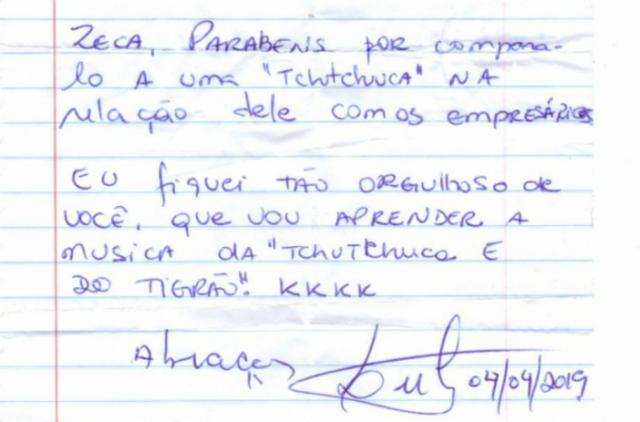 ZECA, PARABENS por compara-
lo A uma "TchTchuca" NA
relação dele com os empresários
EU fiquei TÃO ORGULHOSO de
VOCÊ, que vou APRENDER A
MUSICA dA "TCHUTChuca E
DO TIGRÃO". KKKK
Abraços
04/04/2019